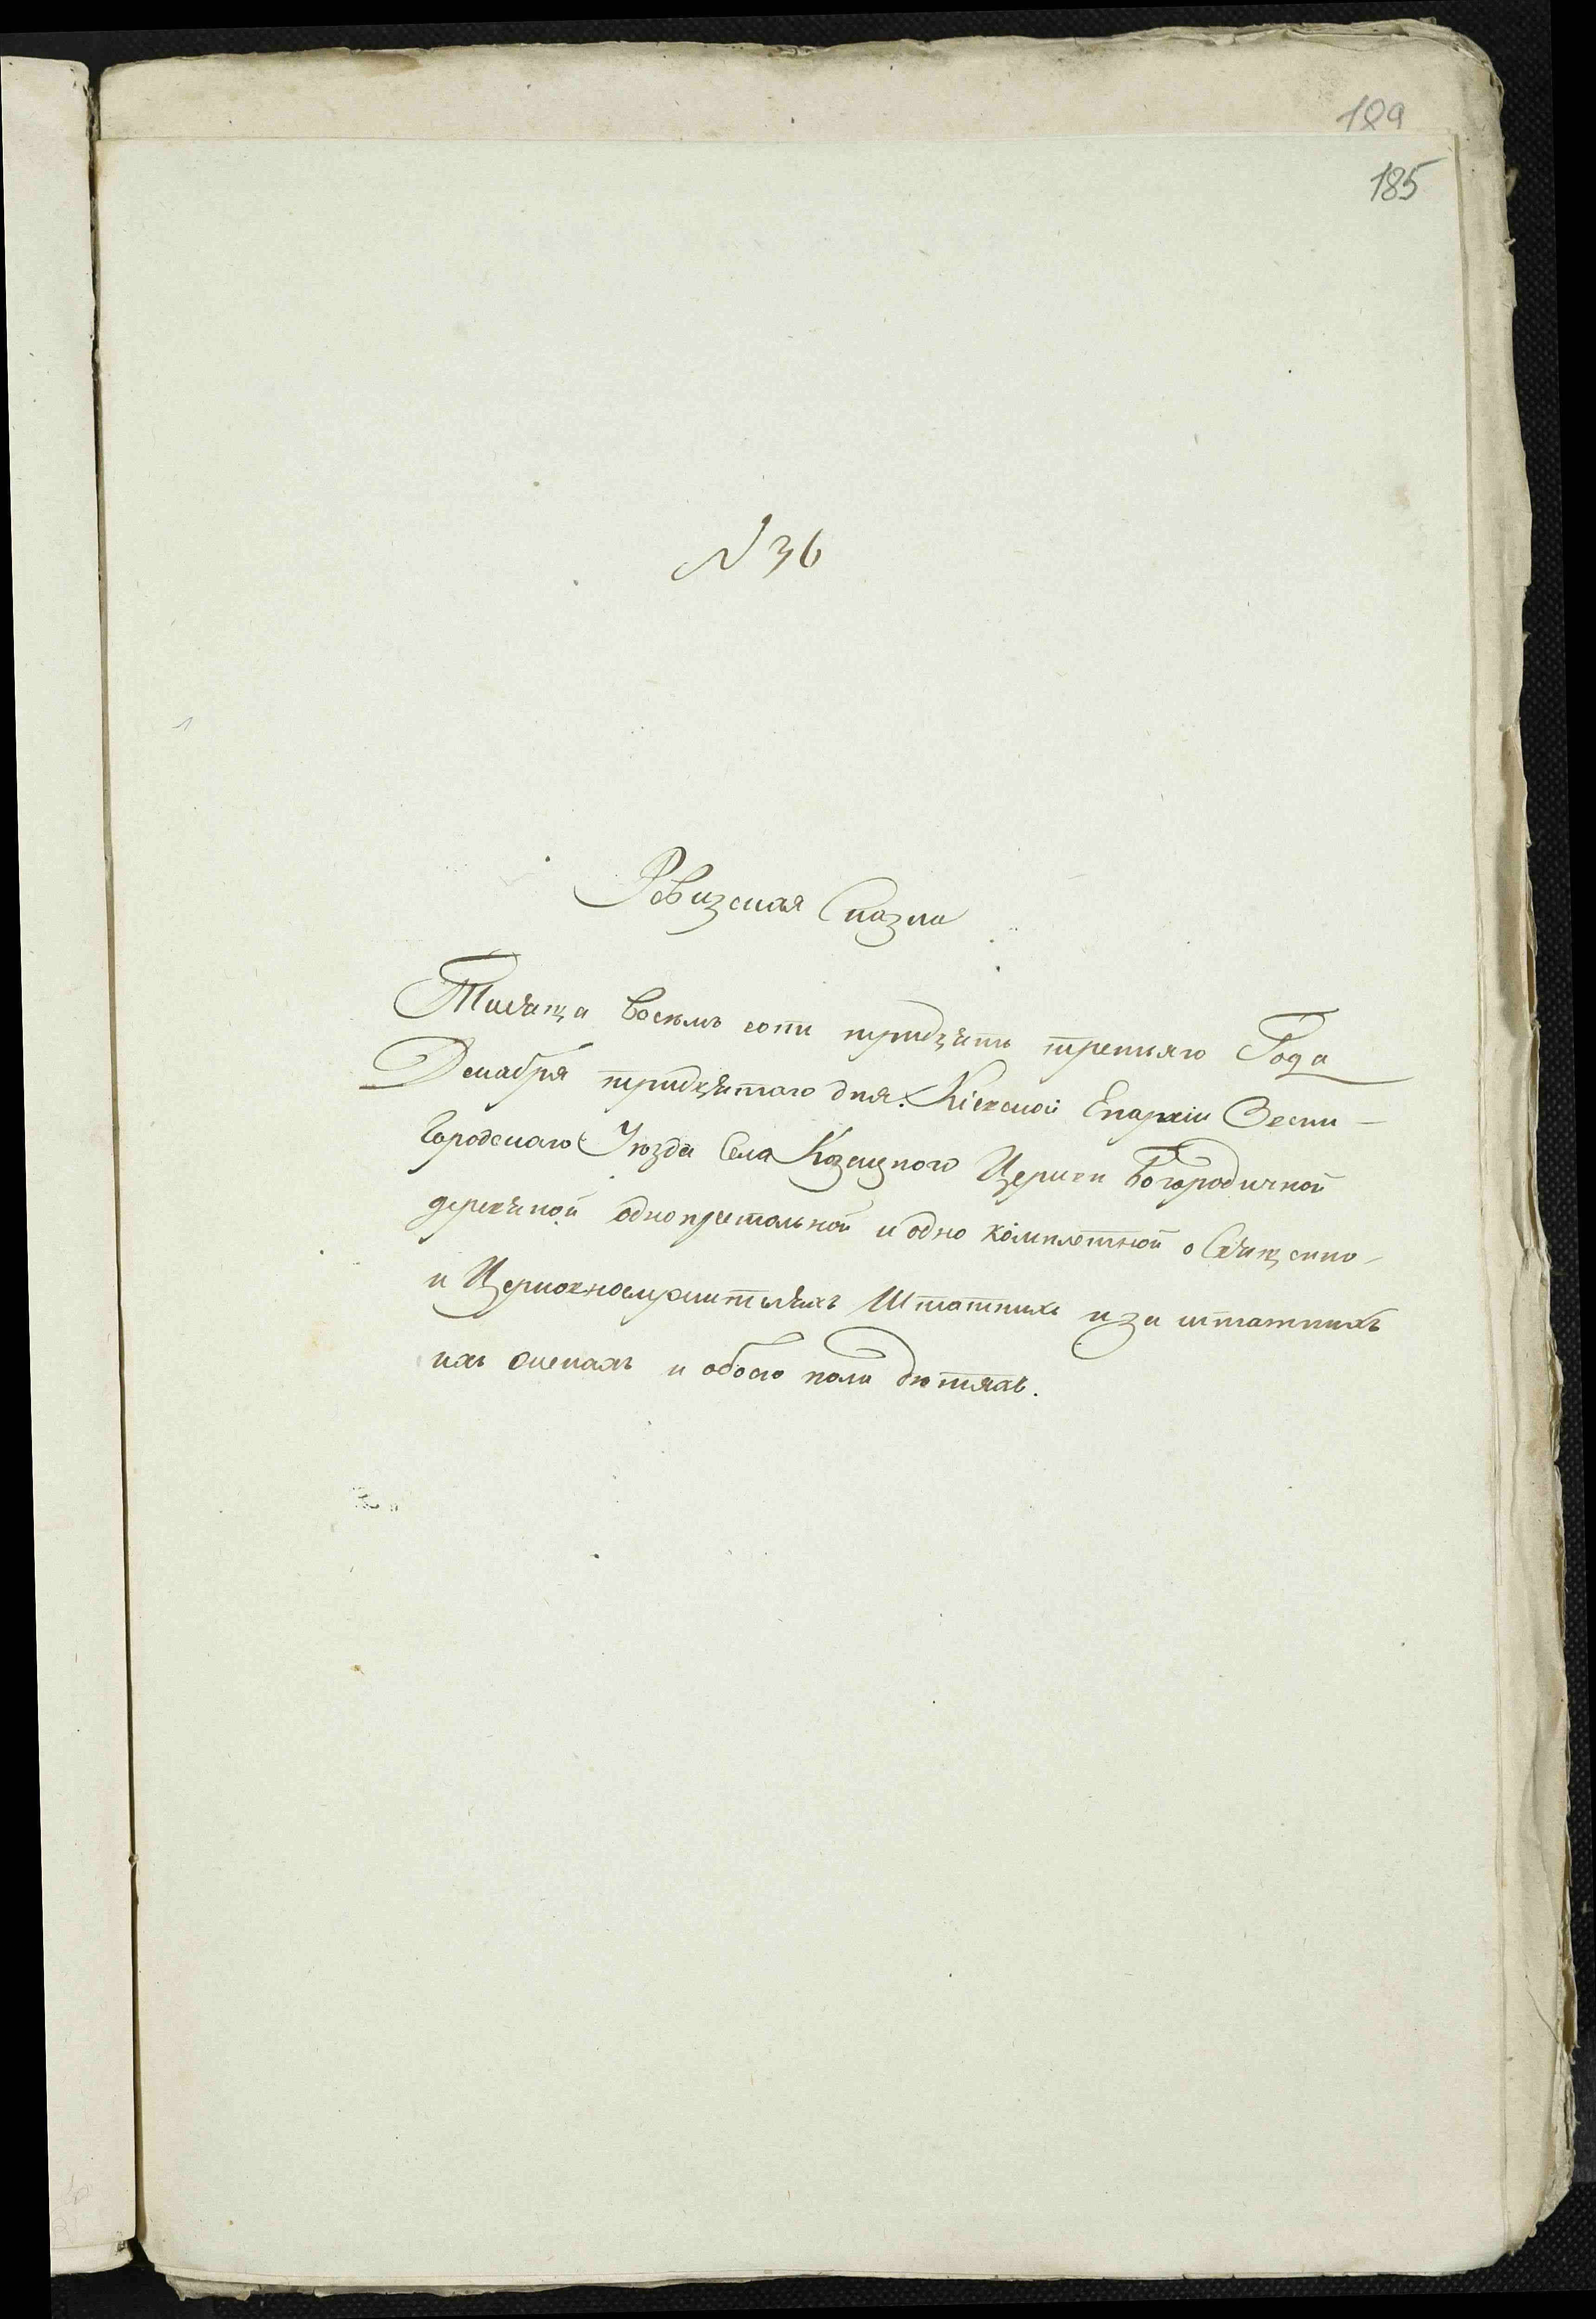 189
185
N 36
Ревизская Сказка
Тысяща восемь соти тридцять третяго Года
Декабря тридцятаго дня. Кіевской Епархіи Звени-
городскаго Уюзда Села Козацкого Церкви Богородичной
деревяной однопрестольной и одно комплетной о Священо-
и Церковнослужителяхъ Штатныхъ и за штатныхъ
ихъ женахъ и обоего пола дютяхъ.